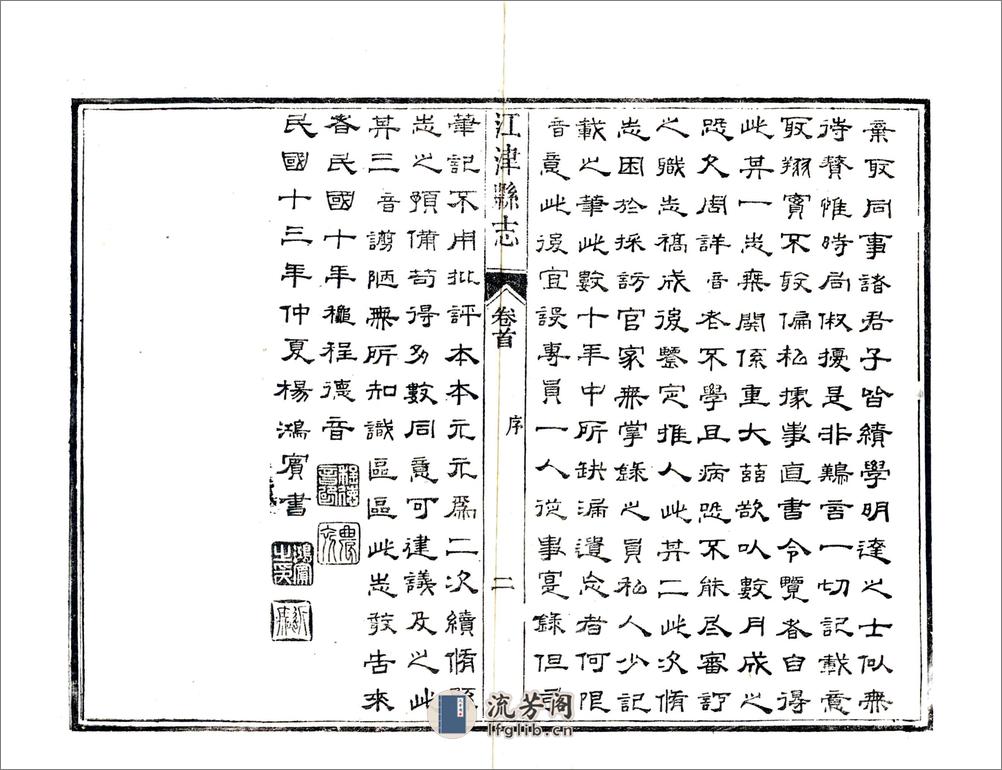 棄取同事諸君子皆績學明達之士似無
待贅惟時局俶擾是非難言一切記載意
取翔實不設偏私據事直書令覽者自得
此其一志乘關係重大欲以數月成之
恐欠周詳音老不學且病恐不能尽審訂
之職志稿成後鑒定推人此其二此次脩
志困於採訪官家無掌錄之員私人少記
載之筆此數十年中所缺漏遺忘者何限
音意此後宜設專員一人從事寔錄但許
江津縣志
卷首
序
二
筆記不用批評本本元元爲二次續脩縣
志之預備苟得多數同意可建議及之此
其三音謭陋無所知識區區此志敬告來
者民國十年穐程德音
民國十三年仲夏楊鴻賓書
流芳阁
lfglib.cn